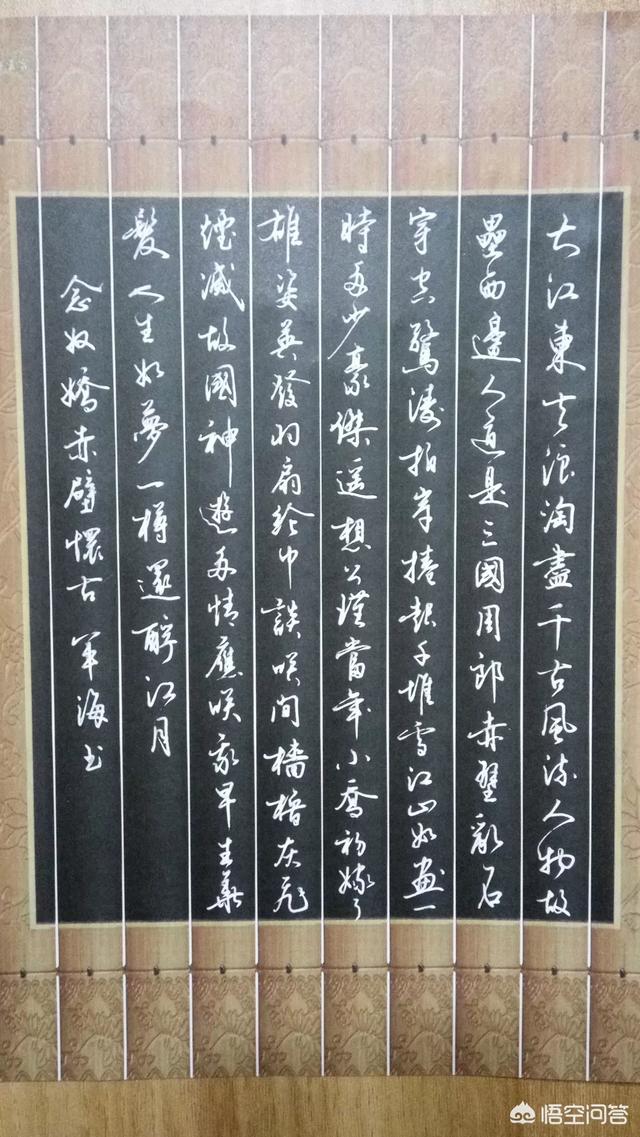 大江東去浪淘盡千古風流人物故
壘西邊人道是三國周郎赤壁亂石
穿空驚濤拍岸捲起千堆雪江山如畫一
時多少豪傑遥想公瑾當年小喬初嫁了
雄姿英發羽扇綸巾談咲間檣櫓灰飛
煙滅故國神遊多情應咲我早生華
髮人生如夢一樽還酹江月
念奴嬌赤壁懷古 军海书
悟空问答